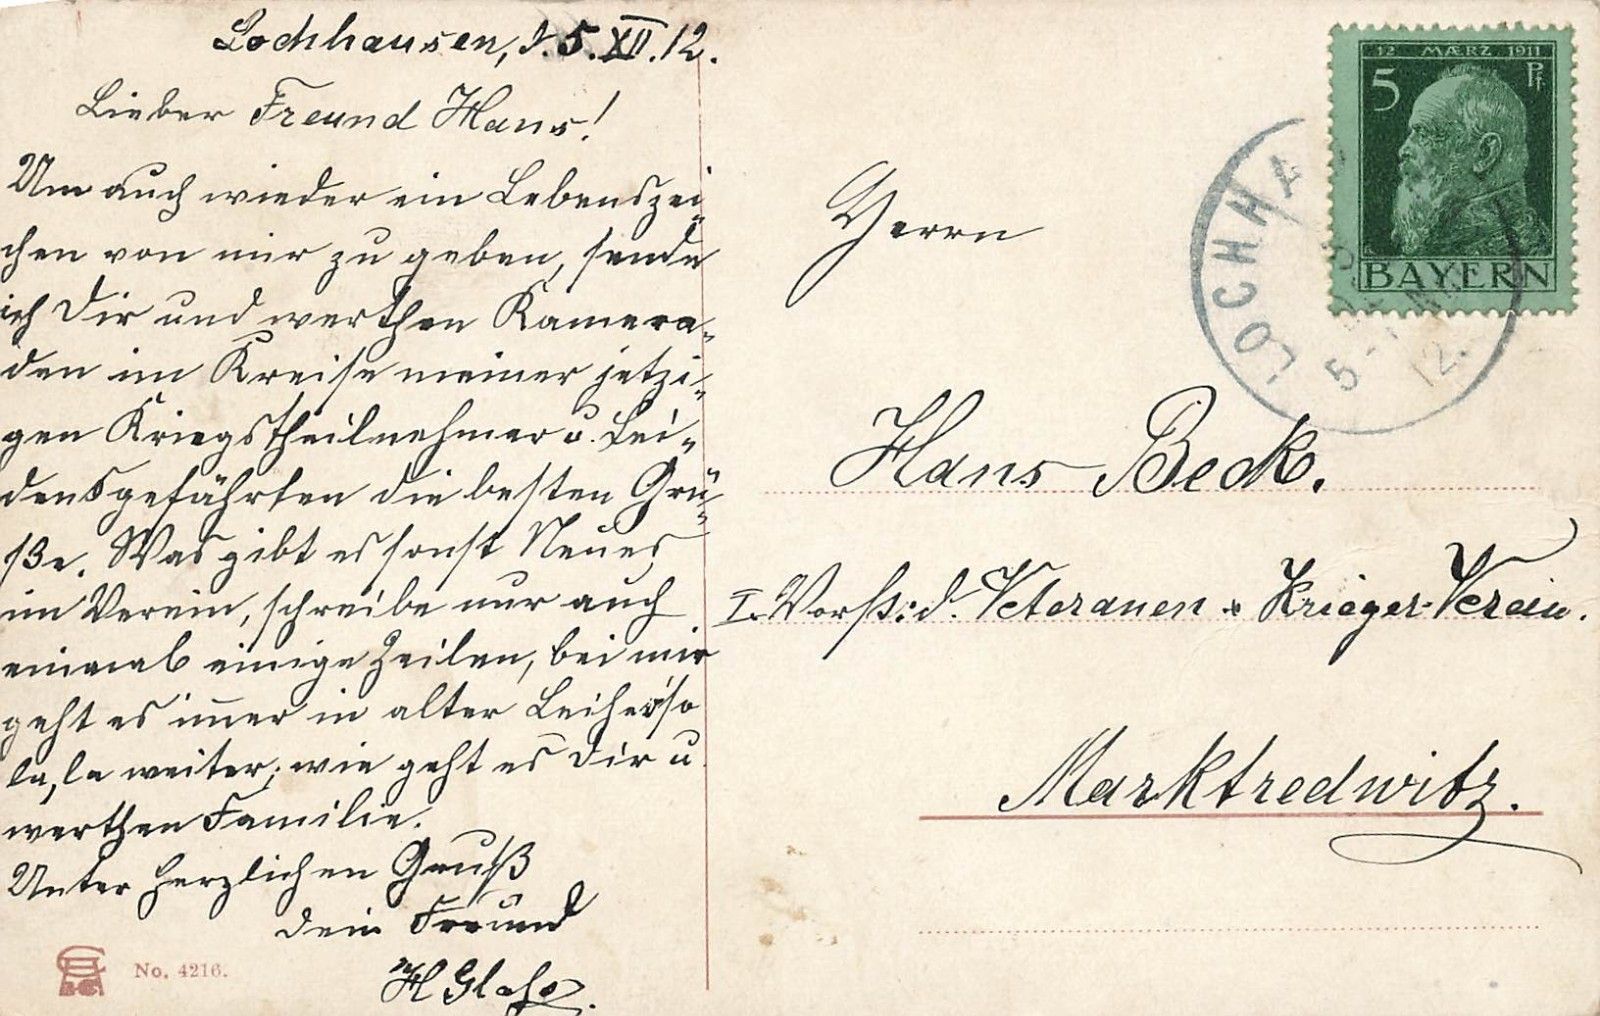 Lochhausen, d. 5. XII. 12.
Lieber Freund Hans!
Um auch wieder ein Lebenszei-
chen von mir zu geben, sende
ich Dir und werthen Kamera-
den im Kreise meiner jetzi-
gen Kriegstheilnehmer u. Lei-
densgefährten die besten Grü-
ße. Was gibt es sonst Neues
im Verein, schreibe nur auch
einmal einige Zeilen, bei mir
geht es im̅er in alter so
la, la weiter; wie geht es Dir u.
werthen Familie.
Unter herzlichen Gruß
dein Freund
H
No. 4216.
12 MÆRZ 1911
5 Pf.
BAYERN
LOCHHA
5-
12.
Herrn
Hans Beck.
I. Vorst. d. Veteranen & Krieger-Verein.
Marktredwitz.